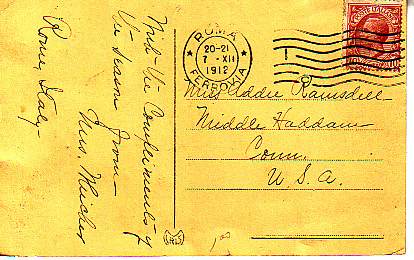 With the Compliments of
the Season from
Mrs. 
Rome, Italy
ROMA
20-21
7 - XII
1912
FERROVIA
POSTE ITALIANE
10
Miss Addie Ramsdell
Middle Haddam
Conn.
U.S.A.